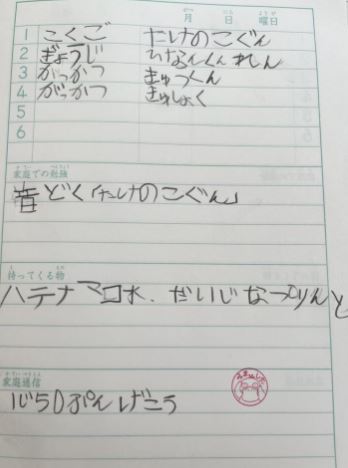 月 日 曜日
1 こくご たけのこぐん
2 ぎょうじ ひなんくんれん
3 がっかつ
4 がっかつ きゅしょく
5
6
家庭での勉強
音どく「たけのこぐん」
持ってくる物
ハテナマ口水、だいじなぷりんと
家庭通信
1じ50ぷんげこう